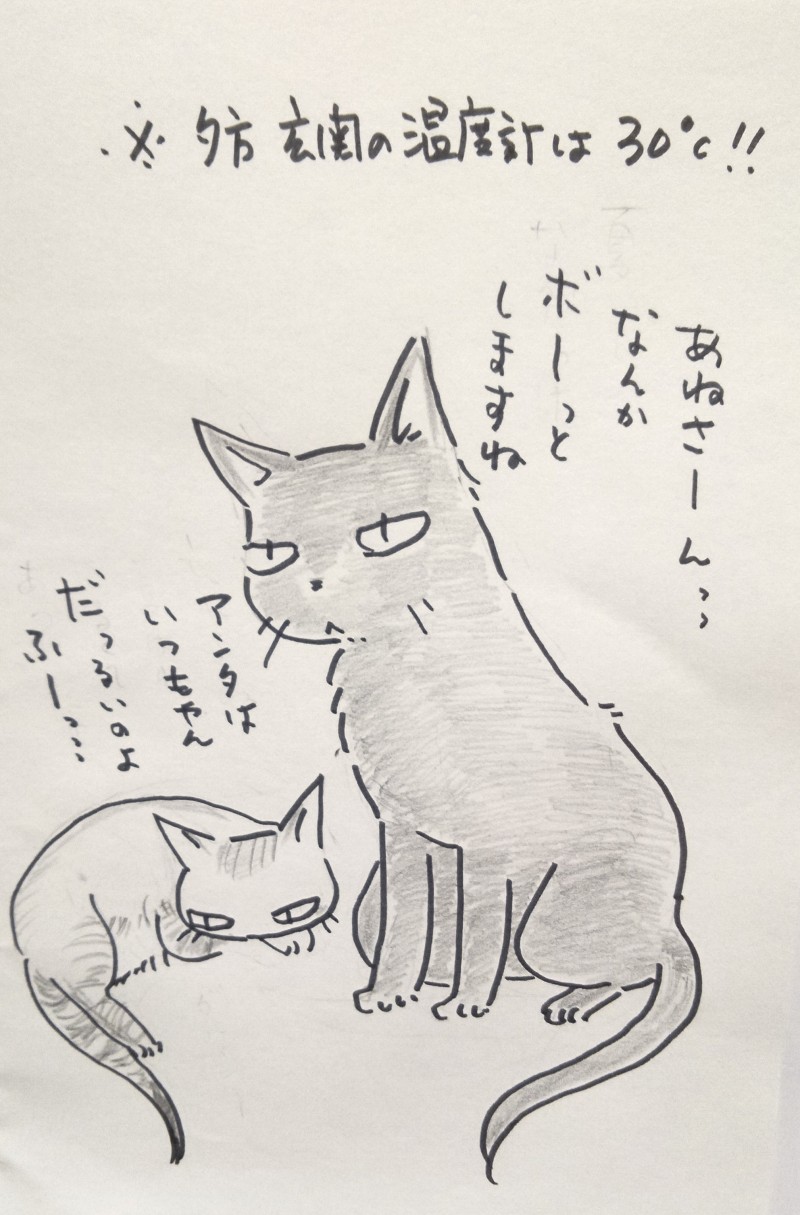 ※ 夕方 玄関の温度計は 30℃!!
あねさーん…
なんか
ボーっと
しますね
アンタは
いっちゃん
だっるいのよ
ふーっ…